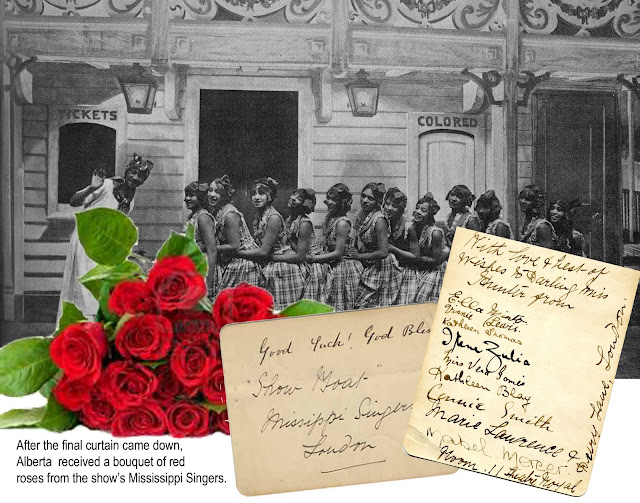 TICKETS
COLORED
Good Luck! God Bless
"Show Boat"
Missippi Singers
London
With love & best of
Wishes to Darling Miss
Hunter from
Kathleen
Miss Vera Jones
Kathleen Blay
Connie Smith
Marie Lawrence &
Mabel Mercer
Room 11 Theatre Royal
Drury Lane, London
After the final curtain came down,
Alberta received a bouquet of red
roses from the show's Mississippi Singers.